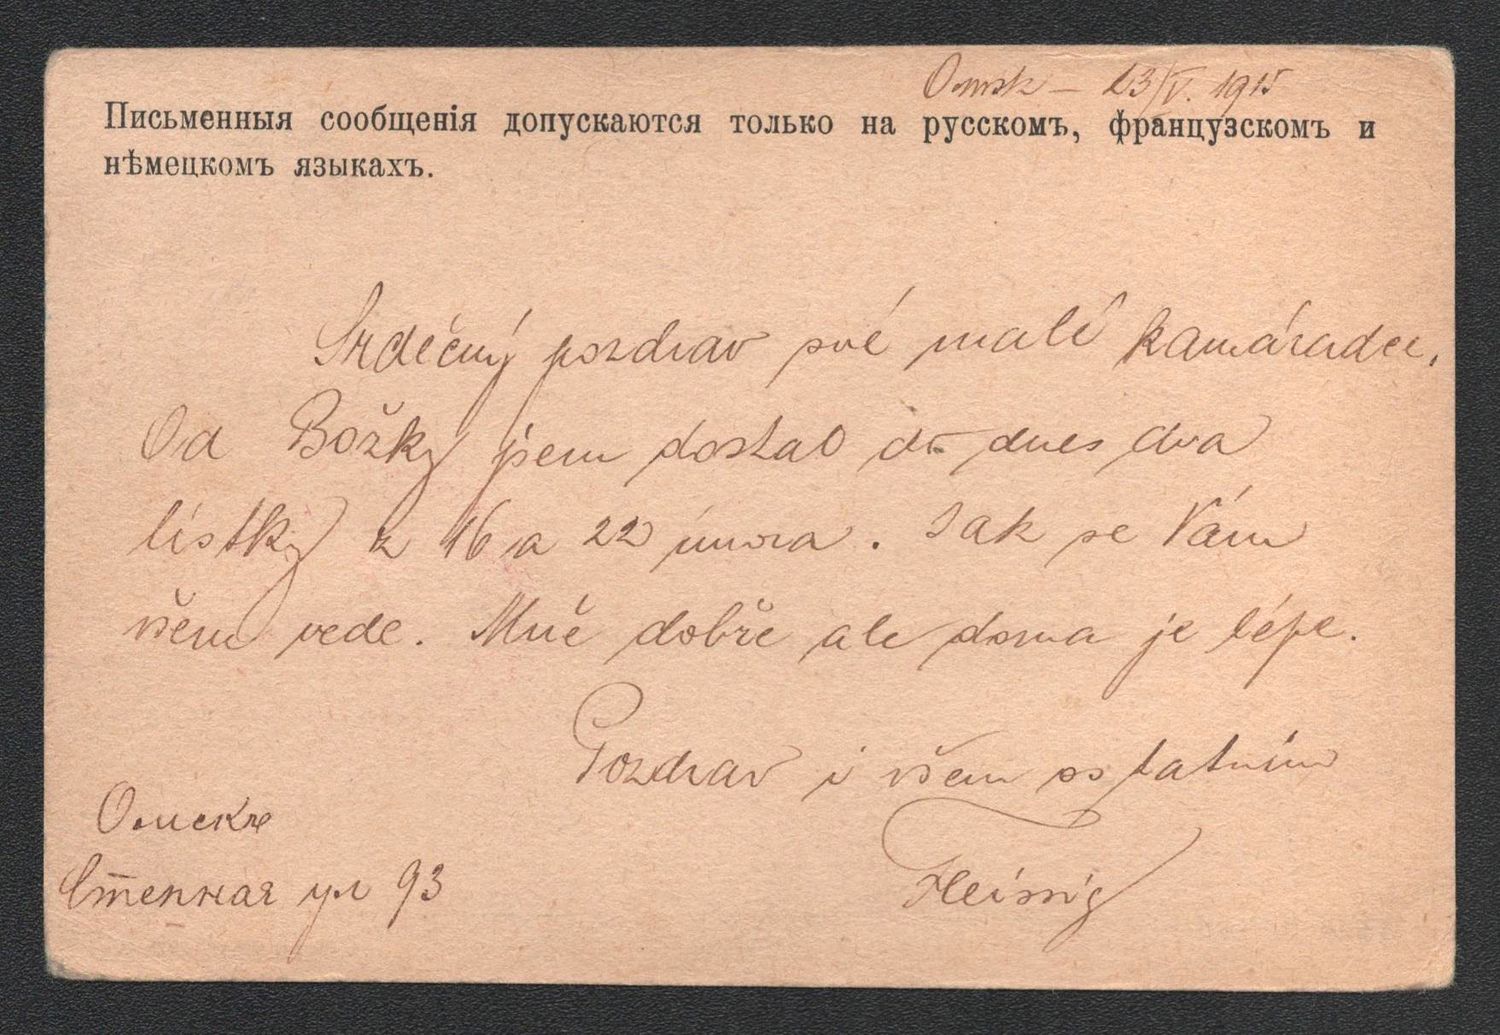 Omsk – 23/V. 1915
Письменныя сообщенія допускаются только на русскомъ, французскомъ и
нѣмецкомъ языкахъ.
Srdečný pozdrav své malé kamarádce.
Od Božky jsem dostal do dnes dva
lístky z 16 a 22 února. Jak se Vám
všem vede. Mně dobře ale doma je lépe.
Pozdrav i všem ostatním
Heissig
Омскъ
Степная ул 93